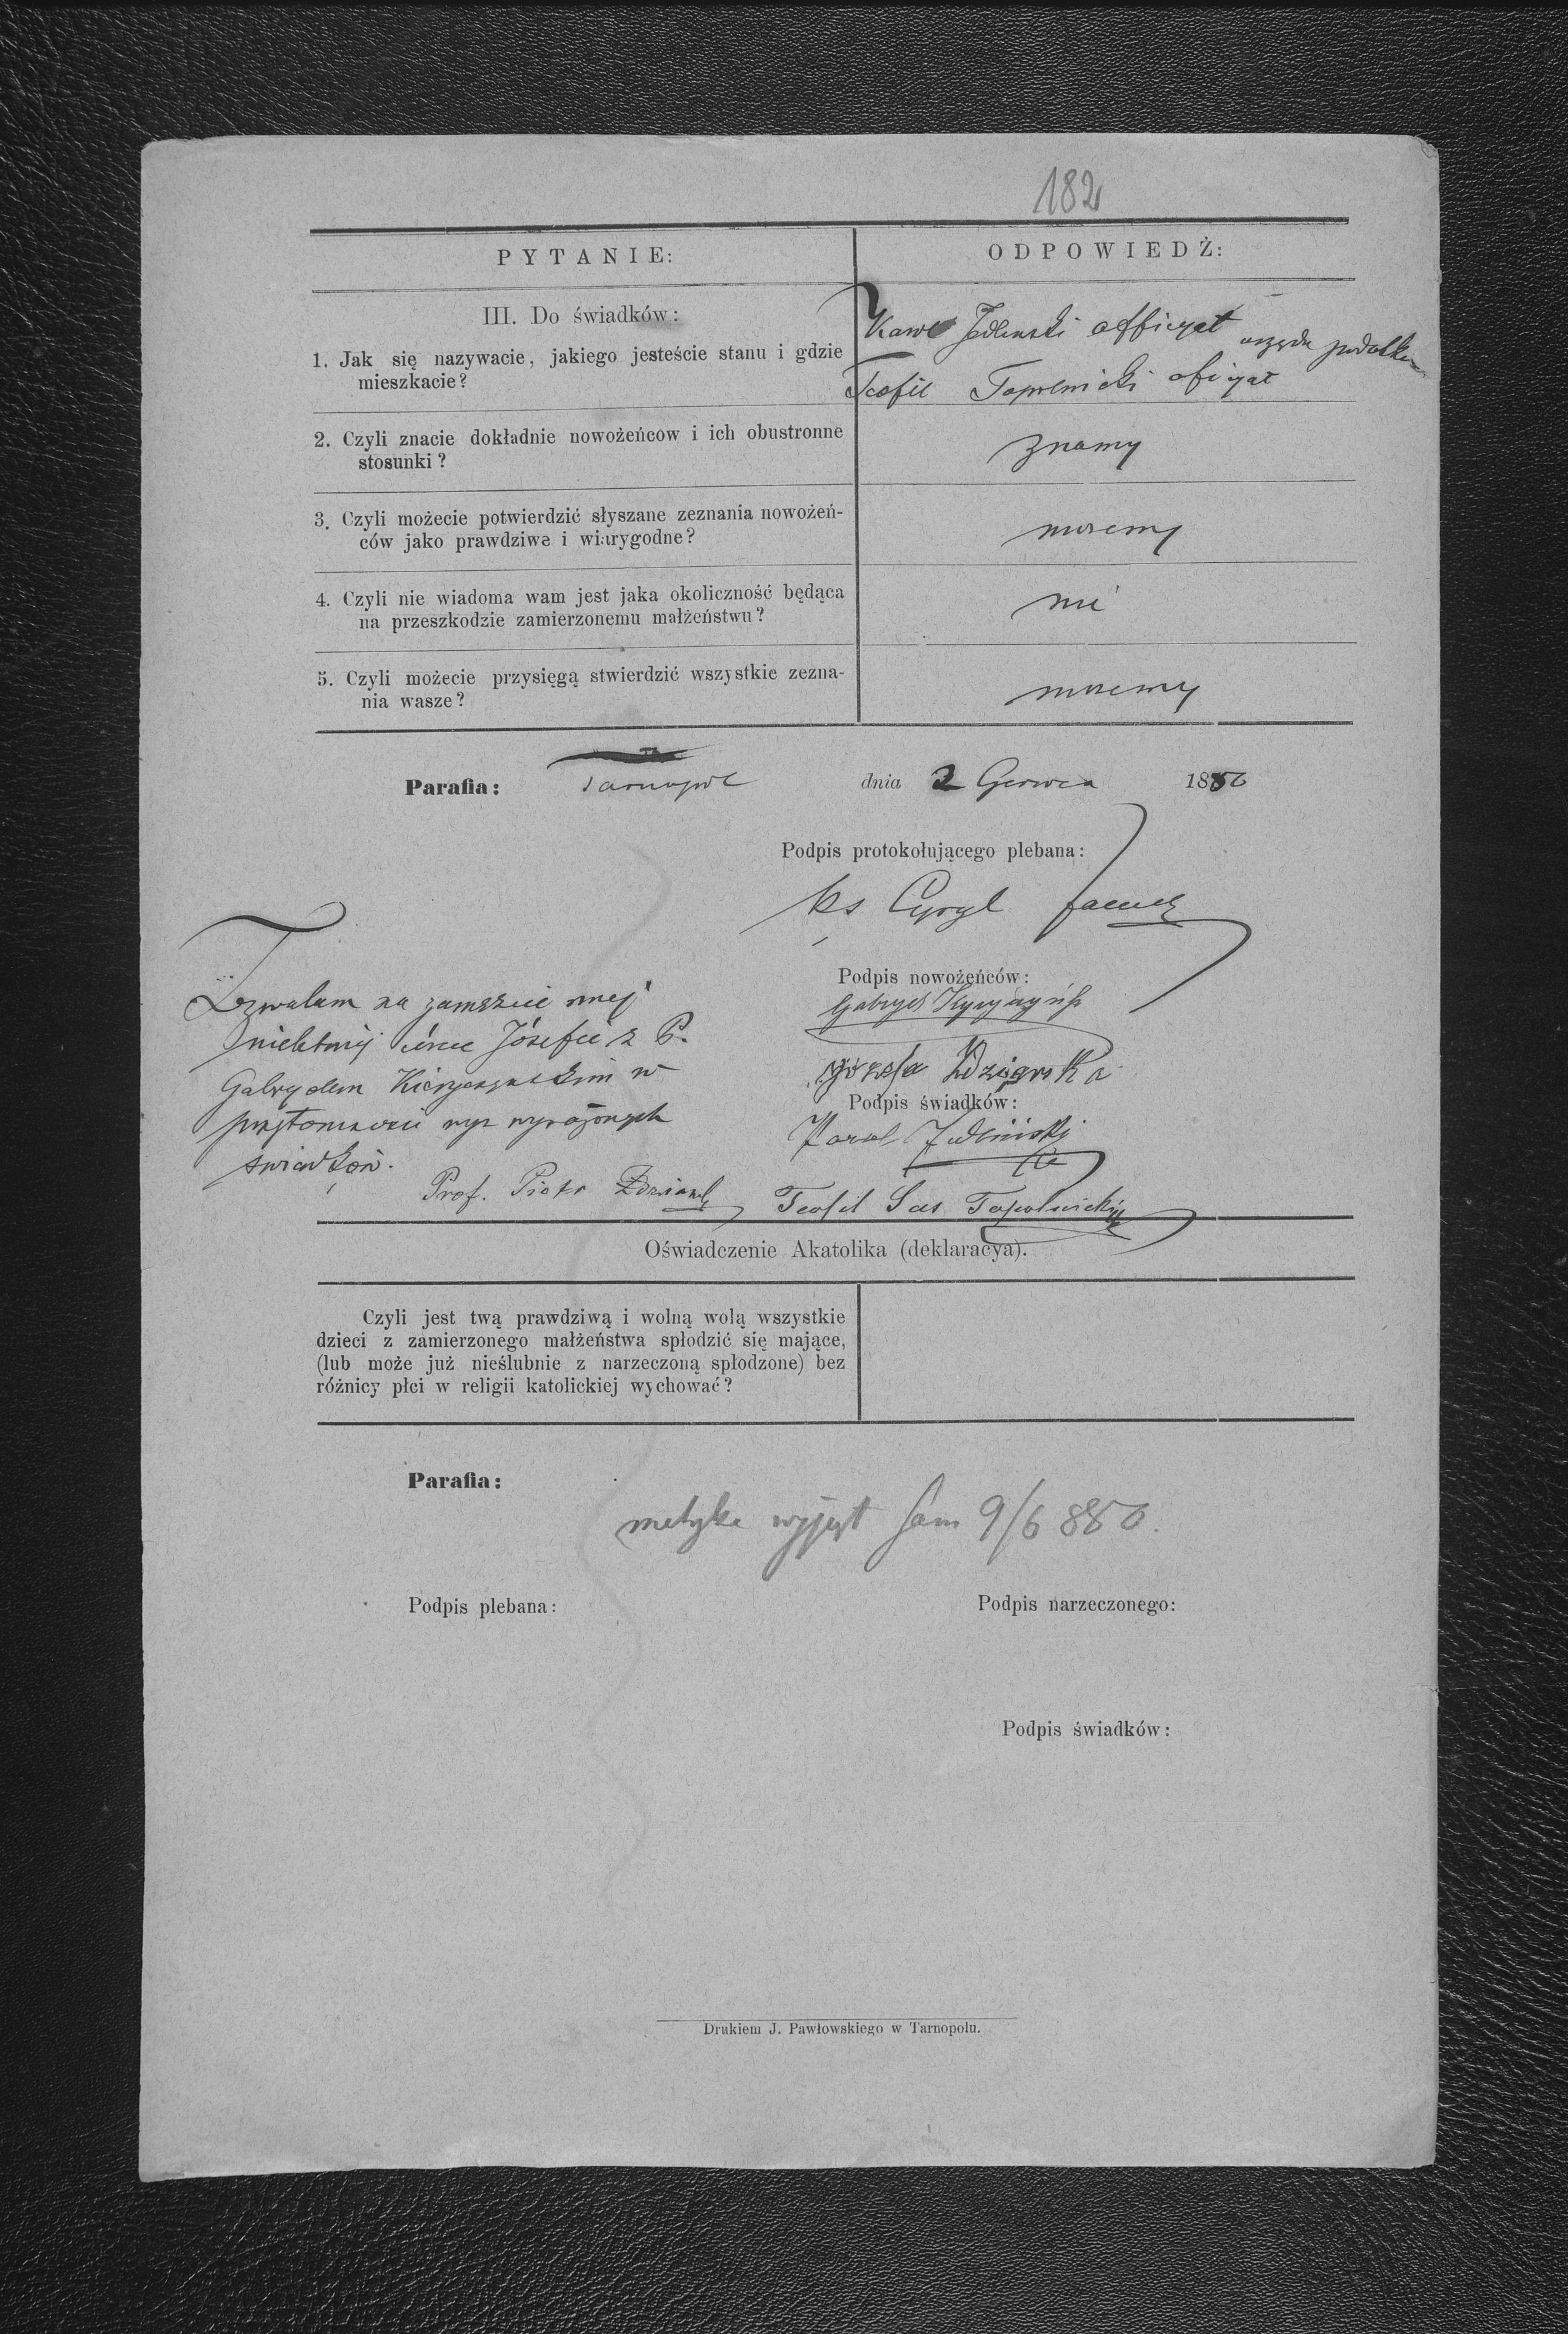 182
PYTANIE:
ODPOWIEDŹ:
III. Do świadków:
1. Jak się nazywacie, jakiego jesteście stanu i gdzie
mieszkacie?
Karol Jedlinski officyał urzędu podatko
Teofil Topolnicki oficyał
2. Czyli znacie dokładnie nowożeńców i ich obustronne
stosunki?
znamy
3. Czyli możecie potwierdzić słyszane zeznania nowożeń-
ców jako prawdziwe i wiarygodne?
mozemy
4. Czyli nie wiadoma wam jest jaka okoliczność będąca
na przeszkodzie zamierzonemu małżeństwu?
nie
5. Czyli możecie przysięgą stwierdzić wszystkie zezna-
nia wasze?
mozemy
Parafia: Tarnopol dnia 2 Czerwca 1880
Podpis protokołującego plebana:
ks Cyryl
Podpis nowożeńców:
Gabryel
Józefa
Podpis świadków:
Karol Jedliński
Teofil Sas Topolnicki
Zezwalam na zamęzcie mej
nieletniej córce Józefie z P.
Gabryelem w
przytomności wyz wyrażonych
świadków.
Prof. Piotr
Oświadczenie Akatolika (deklaracya).
Czyli jest twą prawdziwą i wolną wolą wszystkie
dzieci z zamierzonego małżeństwa spłodzić się mające,
(lub może już nieślubnie z narzeczoną spłodzone) bez
różnicy płci w religii katolickiej wychować?
Parafia:
metyke wyjął sam 9/6 880.
Podpis plebana:
Podpis narzeczonego:
Podpis świadków:
Drukiem J. Pawłowskiego w Tarnopolu.